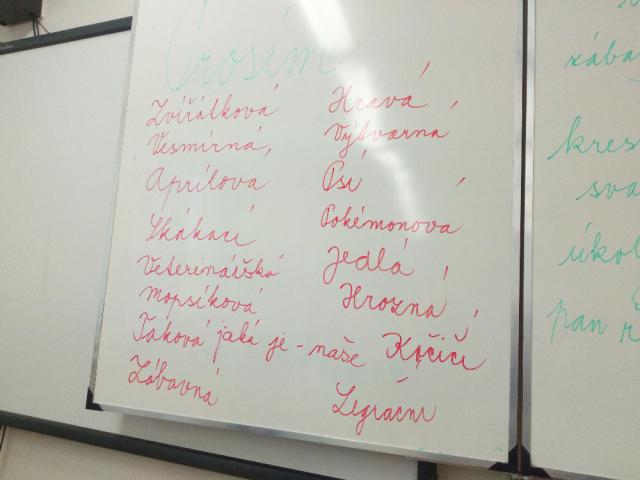 Prosím
Zvířátková
Vesmírná,
Aprílová
Skákací
Veterinářská
Mopsíková
Taková jaká je - naše
Zábavná
Hravá
Výtvarná
Psí
Pokémonová
Jedlá
Hrozná
Kočičí
Legrační
kres
úkol
pan